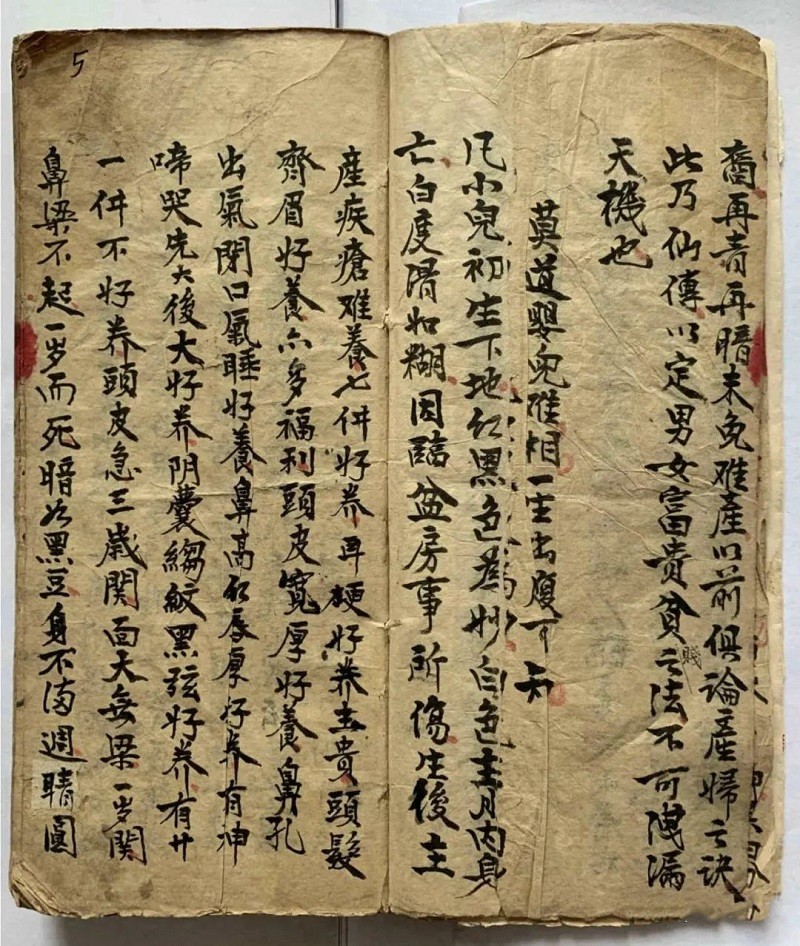 喬再青再暗未免难產以前俱論產婦之訣
此乃仙傳以定男女富貴貧賤之法不可洩漏
天機也
莫道嬰兒难相一生出腹可知
凡小兒初生下地红黑色為妙白色主月內身
亡白度滑如糊因臨盆房事所傷生後主
產疾瘡难養七件好养耳硬好养主貴頭髮
齊眉好養亦多福利頭皮寬厚好養鼻孔
出氣閉口氣睡好養鼻高红唇厚好养有神
啼哭先大後大好养阴囊縐紋黑弦好养有廿
一件不好养頭皮急三歲関面天無梁一岁関
鼻梁不起一岁而死暗如黑豆身不滿週睛圓
5